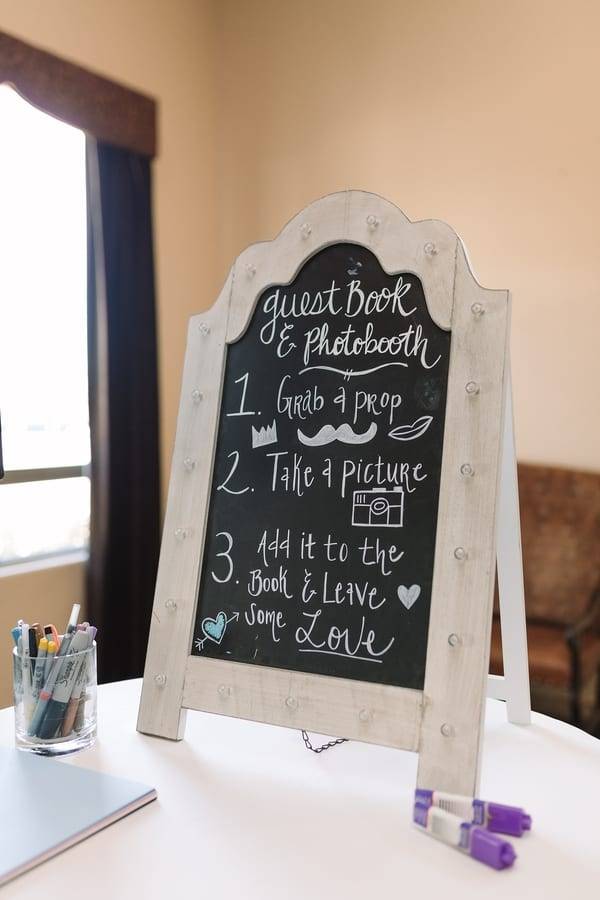 guest Book
& Photobooth
1. Grab a prop
2. Take a picture
3. Add it to the
Book & Leave
some Love